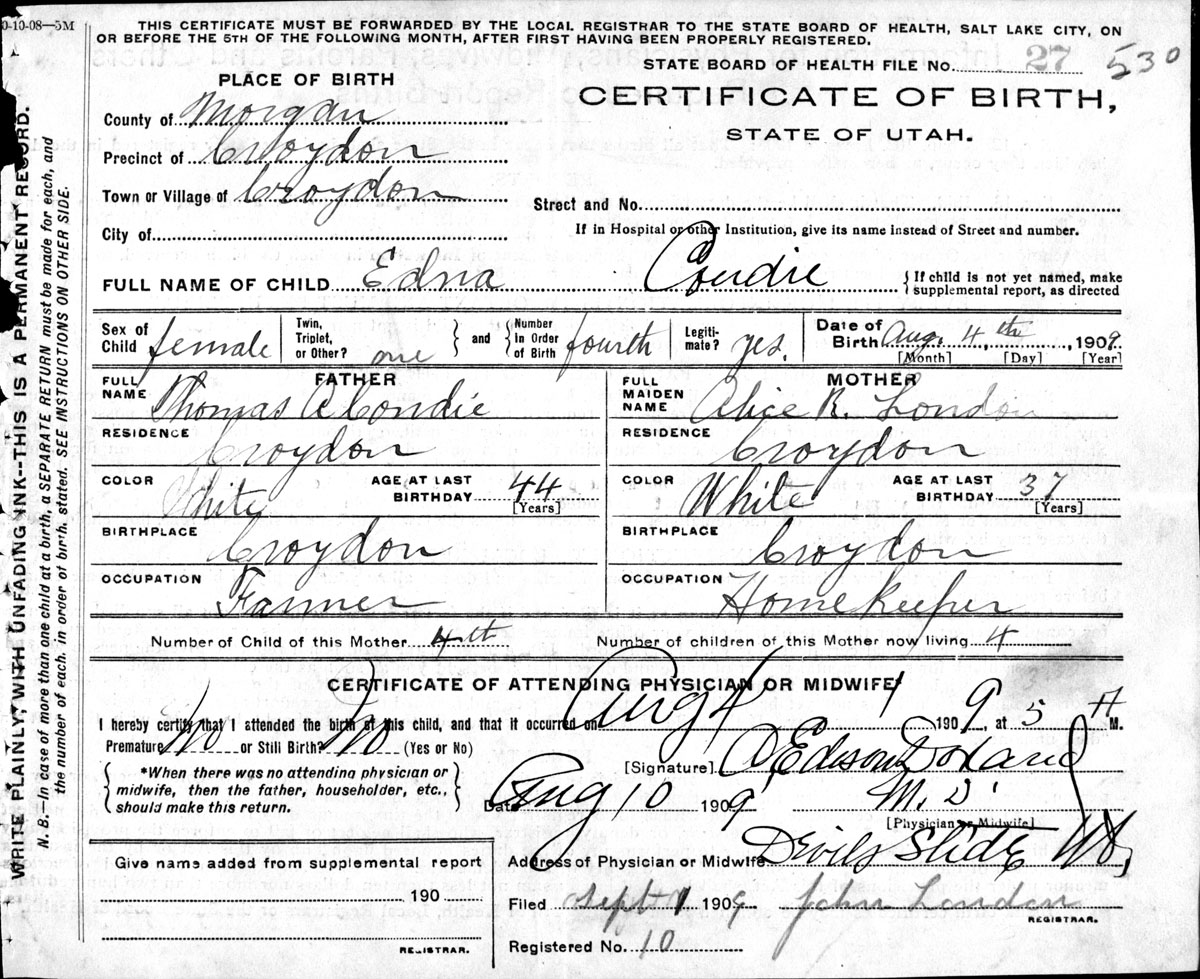 0-10-08—5M
THIS CERTIFICATE MUST BE FORWARDED BY THE LOCAL REGISTRAR TO THE STATE BOARD OF HEALTH, SALT LAKE CITY, ON
OR BEFORE THE 5TH OF THE FOLLOWING MONTH, AFTER FIRST HAVING BEEN PROPERLY REGISTERED.
STATE BOARD OF HEALTH FILE No. 27 530
PLACE OF BIRTH
CERTIFICATE OF BIRTH,
STATE OF UTAH.
County of Morgan
Precinct of Croydon
Town or Village of Croydon
Street and No.
City of
If in Hospital or other Institution, give its name instead of Street and number.
FULL NAME OF CHILD Edna Condie
{If child is not yet named, make
supplemental report, as directed
Sex of Child female
Twin, Triplet, or Other? one
and
Number in Order of Birth fourth
Legitimate? yes.
Date of Birth Aug. 4th, 1909.
[Month] [Day] [Year]
FATHER
FULL NAME Thomas A Condie
RESIDENCE Croydon
COLOR White
AGE AT LAST BIRTHDAY 44
[Years]
BIRTHPLACE Croydon
OCCUPATION Farmer
MOTHER
FULL MAIDEN NAME Alice R. London
RESIDENCE Croydon
COLOR White
AGE AT LAST BIRTHDAY 37
[Years]
BIRTHPLACE Croydon
OCCUPATION Homekeeper
Number of Child of this Mother 4th
Number of children of this Mother now living 4
CERTIFICATE OF ATTENDING PHYSICIAN OR MIDWIFE
I hereby certify that I attended the birth of this child, and that it occurred on Aug 4 1909, at 5 A M.
Premature No or Still Birth? No (Yes or No)
{*When there was no attending physician or
midwife, then the father, householder, etc.,
should make this return.}
[Signature]
Date Aug 10 1909 M.D.
[Physician or Midwife]
Address of Physician or Midwife Devils Slide Ut.
Give name added from supplemental report
190
REGISTRAR.
Filed Sept 1 1909 John London
REGISTRAR.
Registered No. 10
WRITE PLAINLY, WITH UNFADING INK--THIS IS A PERMANENT RECORD.
N. B.—In case of more than one child at a birth, a SEPARATE RETURN must be made for each, and
the number of each, in order of birth, stated. SEE INSTRUCTIONS ON OTHER SIDE.